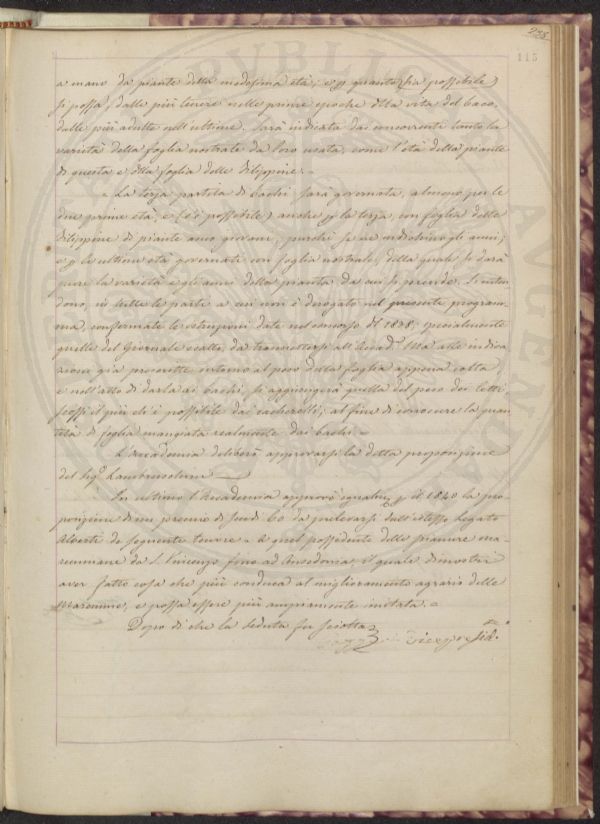 225
115
a mano da piante della medesima età; e p quanto sia possibile
si possa, dalle più tenere nelle prime epoche della vita del baco,
dalle più adulte nell'ultime. Sarà indicata dai concorrenti tanto la
varietà della foglia nostrale da loro usata, come l'età della piante
di questa e della foglia delle Filippine. =
= La terza partita di bachi sarà governata, almeno per le
due prime età, e (s'è possibile) anche p la terza, con foglia delle
Filippine di piante anco giovani, purchè se ne indichino gli anni;
e p le ultime età governate con foglia nostrale, della quale si darà
pure la varietà e gli anni della pianta da cui si prende. S'inten
dono, in tutte le parte a cui non è derogato nel presente program-
ma, confermate le istruzioni date nel concorso del 1838; specialmente
quelle del Giornale esatto, da trasmettersi all'Accad. Ma alle indica
zioni già prescritte intorno al peso della foglia appena colta,
e nell'atto di darla ai bachi, si aggiungerà quella del peso dei letti
stessi il più ch'è possibile dai cacherelli; al fine di conoscere la quan
tità di foglia mangiata realmente dai bachi. =
L'Accademia deliberò approvarsi la detta proposizione
del Sigr Lambruschini
In ultimo l'Accademia approvò p il 1840 la pro-
posizione di un premio di Scudi 60 da prelevarsi dall'istesso Legato
Alberti del seguente tenore = A quel possidente delle pianure ma-
remmane da S. Vincenzo fino ad Ansedonia, il quale dimostri
aver fatto cosa che più conduca al miglioramento agrario delle
Maremme, e possa essere più ampiamente imitata. =
Dopo di che la seduta fu sciolta